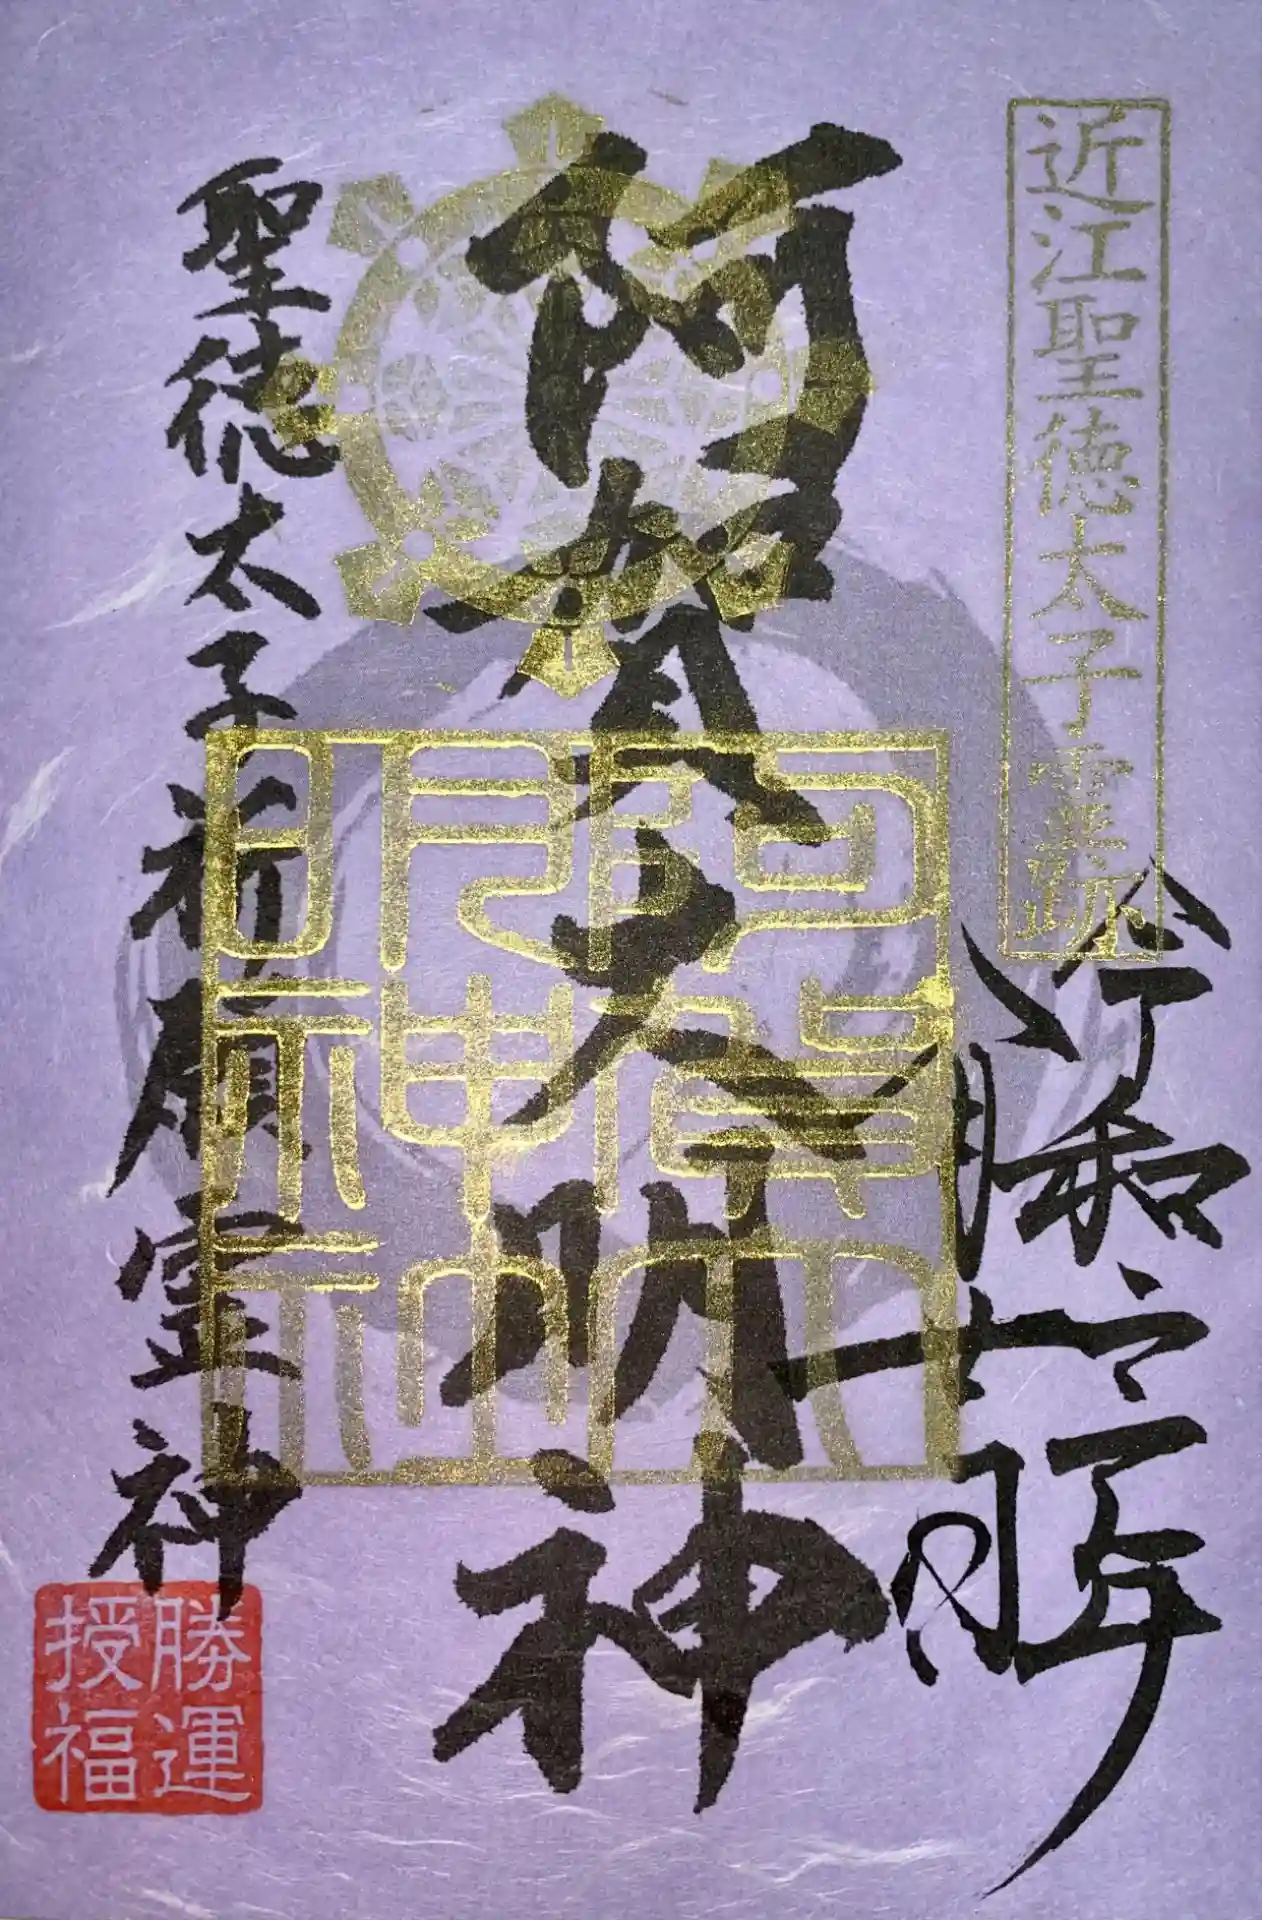 近江聖徳太子霊跡
令和六年
阿賀大明神
阿賀大
明神社
聖徳太子祈願霊神
勝運
授福